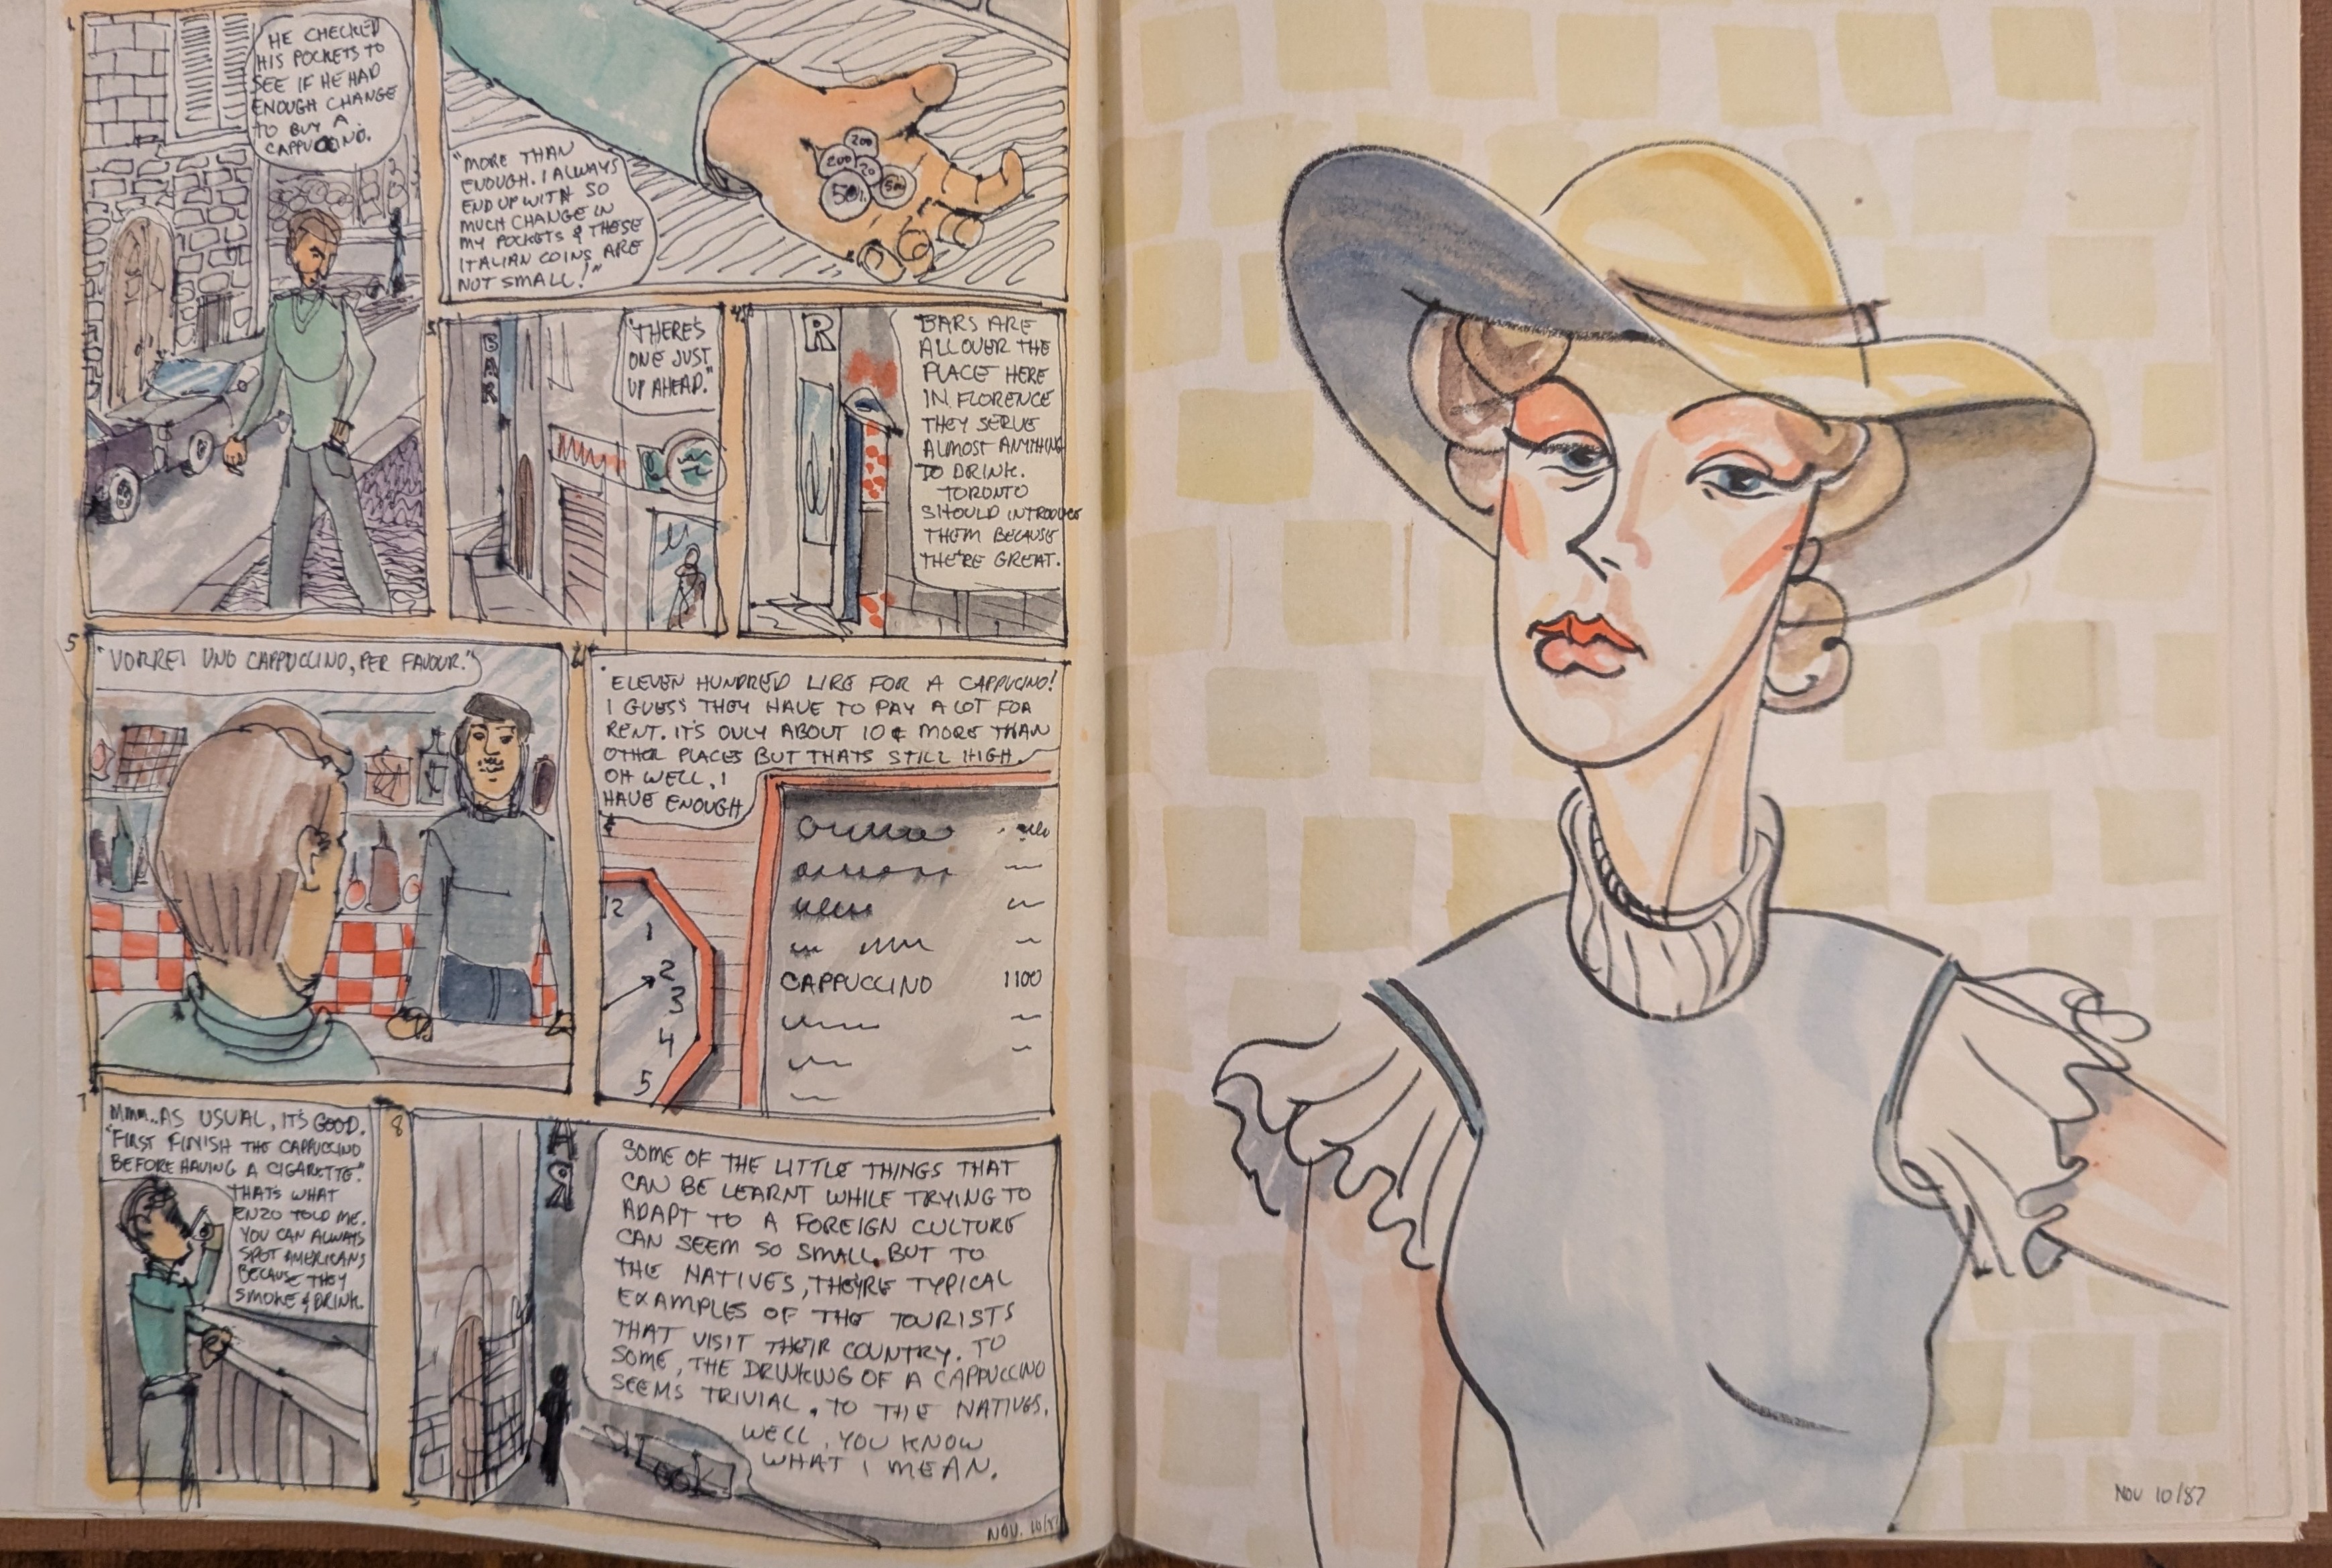 1
HE CHECKED
HIS POCKETS TO
SEE IF HE HAD
ENOUGH CHANGE
TO BUY A
CAPPUCCINO.
"MORE THAN
ENOUGH. I ALWAYS
END UP WITH SO
MUCH CHANGE IN
MY POCKETS & THESE
ITALIAN COINS ARE
NOT SMALL!"
200
200
20
50
50
3
BAR
"THERE'S
ONE JUST
UP AHEAD."
4
R
BARS ARE
ALL OVER THE
PLACE HERE
IN FLORENCE
THEY SERVE
ALMOST ANYTHING
TO DRINK.
TORONTO
SHOULD INTRODUCE
THEM BECAUSE
THE'RE GREAT.
5
"VORREI UNO CAPPUCCINO, PER FAVOUR."
6
"ELEVEN HUNDRED LIRE FOR A CAPPUCINO!
I GUESS THEY HAVE TO PAY A LOT FOR
RENT. IT'S ONLY ABOUT 10¢ MORE THAN
OTHER PLACES BUT THATS STILL HIGH.
OH WELL, I
HAVE ENOUGH
12
1
2
3
4
5
CAPPUCCINO 1100
7
MMM..AS USUAL, IT'S GOOD.
"FIRST FINISH THE CAPPUCCINO
BEFORE HAVING A CIGARETTE".
THAT'S WHAT
ENZO TOLD ME.
YOU CAN ALWAYS
SPOT AMERICANS
BECAUSE THEY
SMOKE & DRINK.
8
SOME OF THE LITTLE THINGS THAT
CAN BE LEARNT WHILE TRYING TO
ADAPT TO A FOREIGN CULTURE
CAN SEEM SO SMALL. BUT TO
THE NATIVES, THEY'RE TYPICAL
EXAMPLES OF THE TOURISTS
THAT VISIT THEIR COUNTRY. TO
SOME, THE DRINKING OF A CAPPUCCINO
SEEMS TRIVIAL. TO THE NATIVES.
WELL, YOU KNOW
WHAT I MEAN.
NOV. 10/87
NOV 10/87